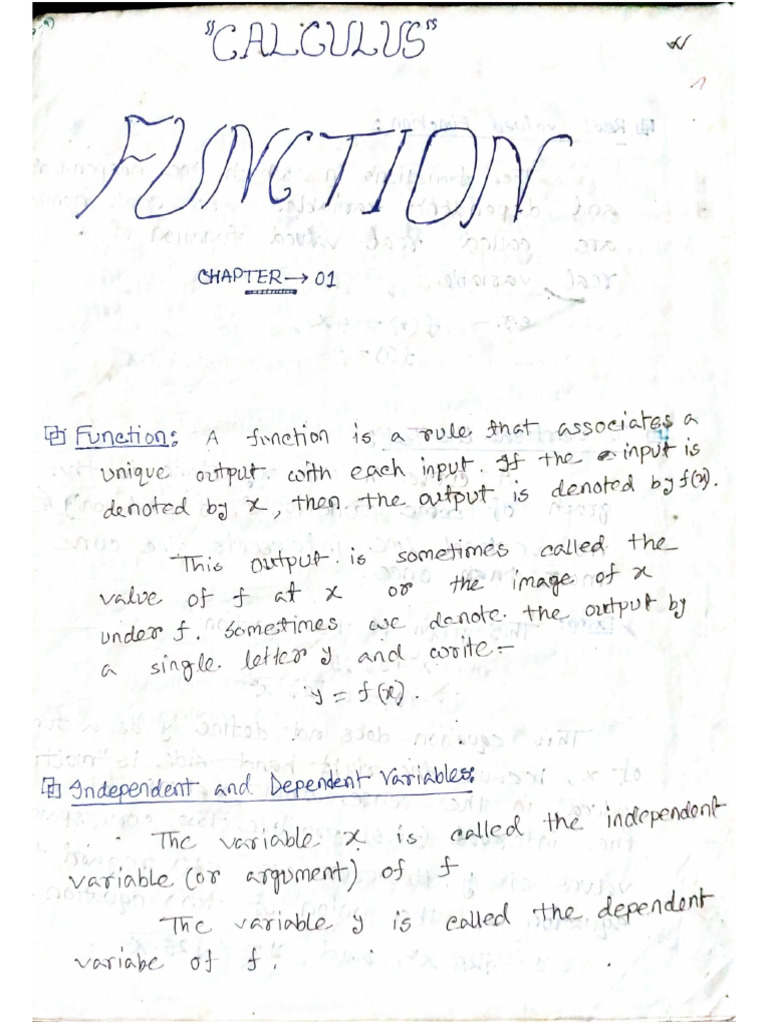 "CALCULUS"
FUNCTION
CHAPTER → 01
Function: A function is a rule that associates a
unique output with each input. If the input is
denoted by x, then the output is denoted by f(x).
This output is sometimes called the
value of f at x or the image of x
under f. Sometimes we denote the output by
a single letter y and write-
y = f(x).
Independent and Dependent Variables:
The variable x is called the independent
variable (or argument) of f.
The variable y is called the dependent
variabe of f.